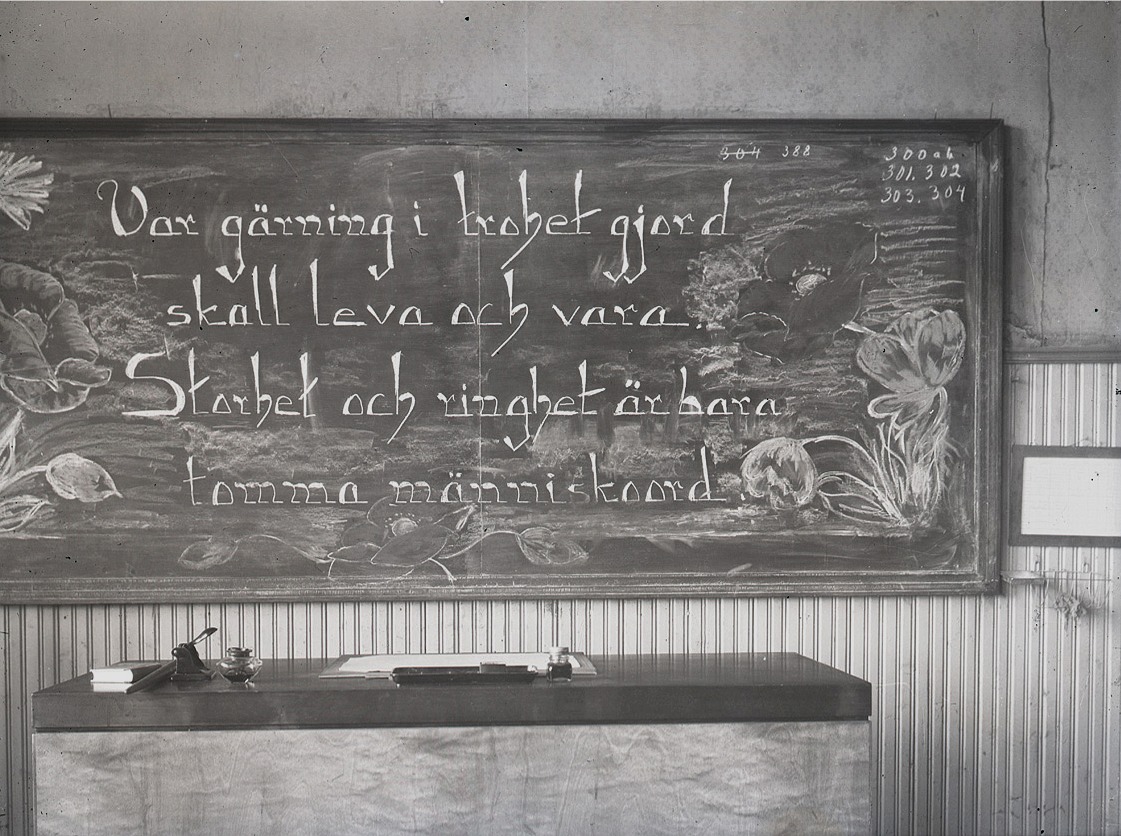 304 388
300ab.
301. 302
303. 304
Var gärning i trohet gjord
skall leva och vara.
Storhet och ringhet är bara
tomma människoord.